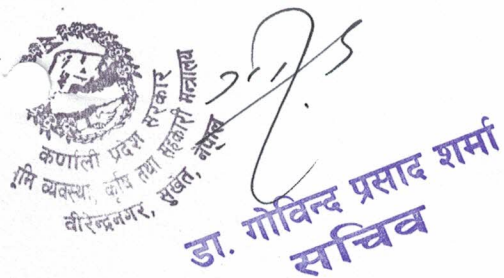 कर्णाली प्रदेश सरकार
भूमि व्यवस्था, कृषि तथा सहकारी मन्त्रालय
वीरेन्द्रनगर, सुर्खेत, नेपाल
डा. गोविन्द प्रसाद शर्मा
सचिव